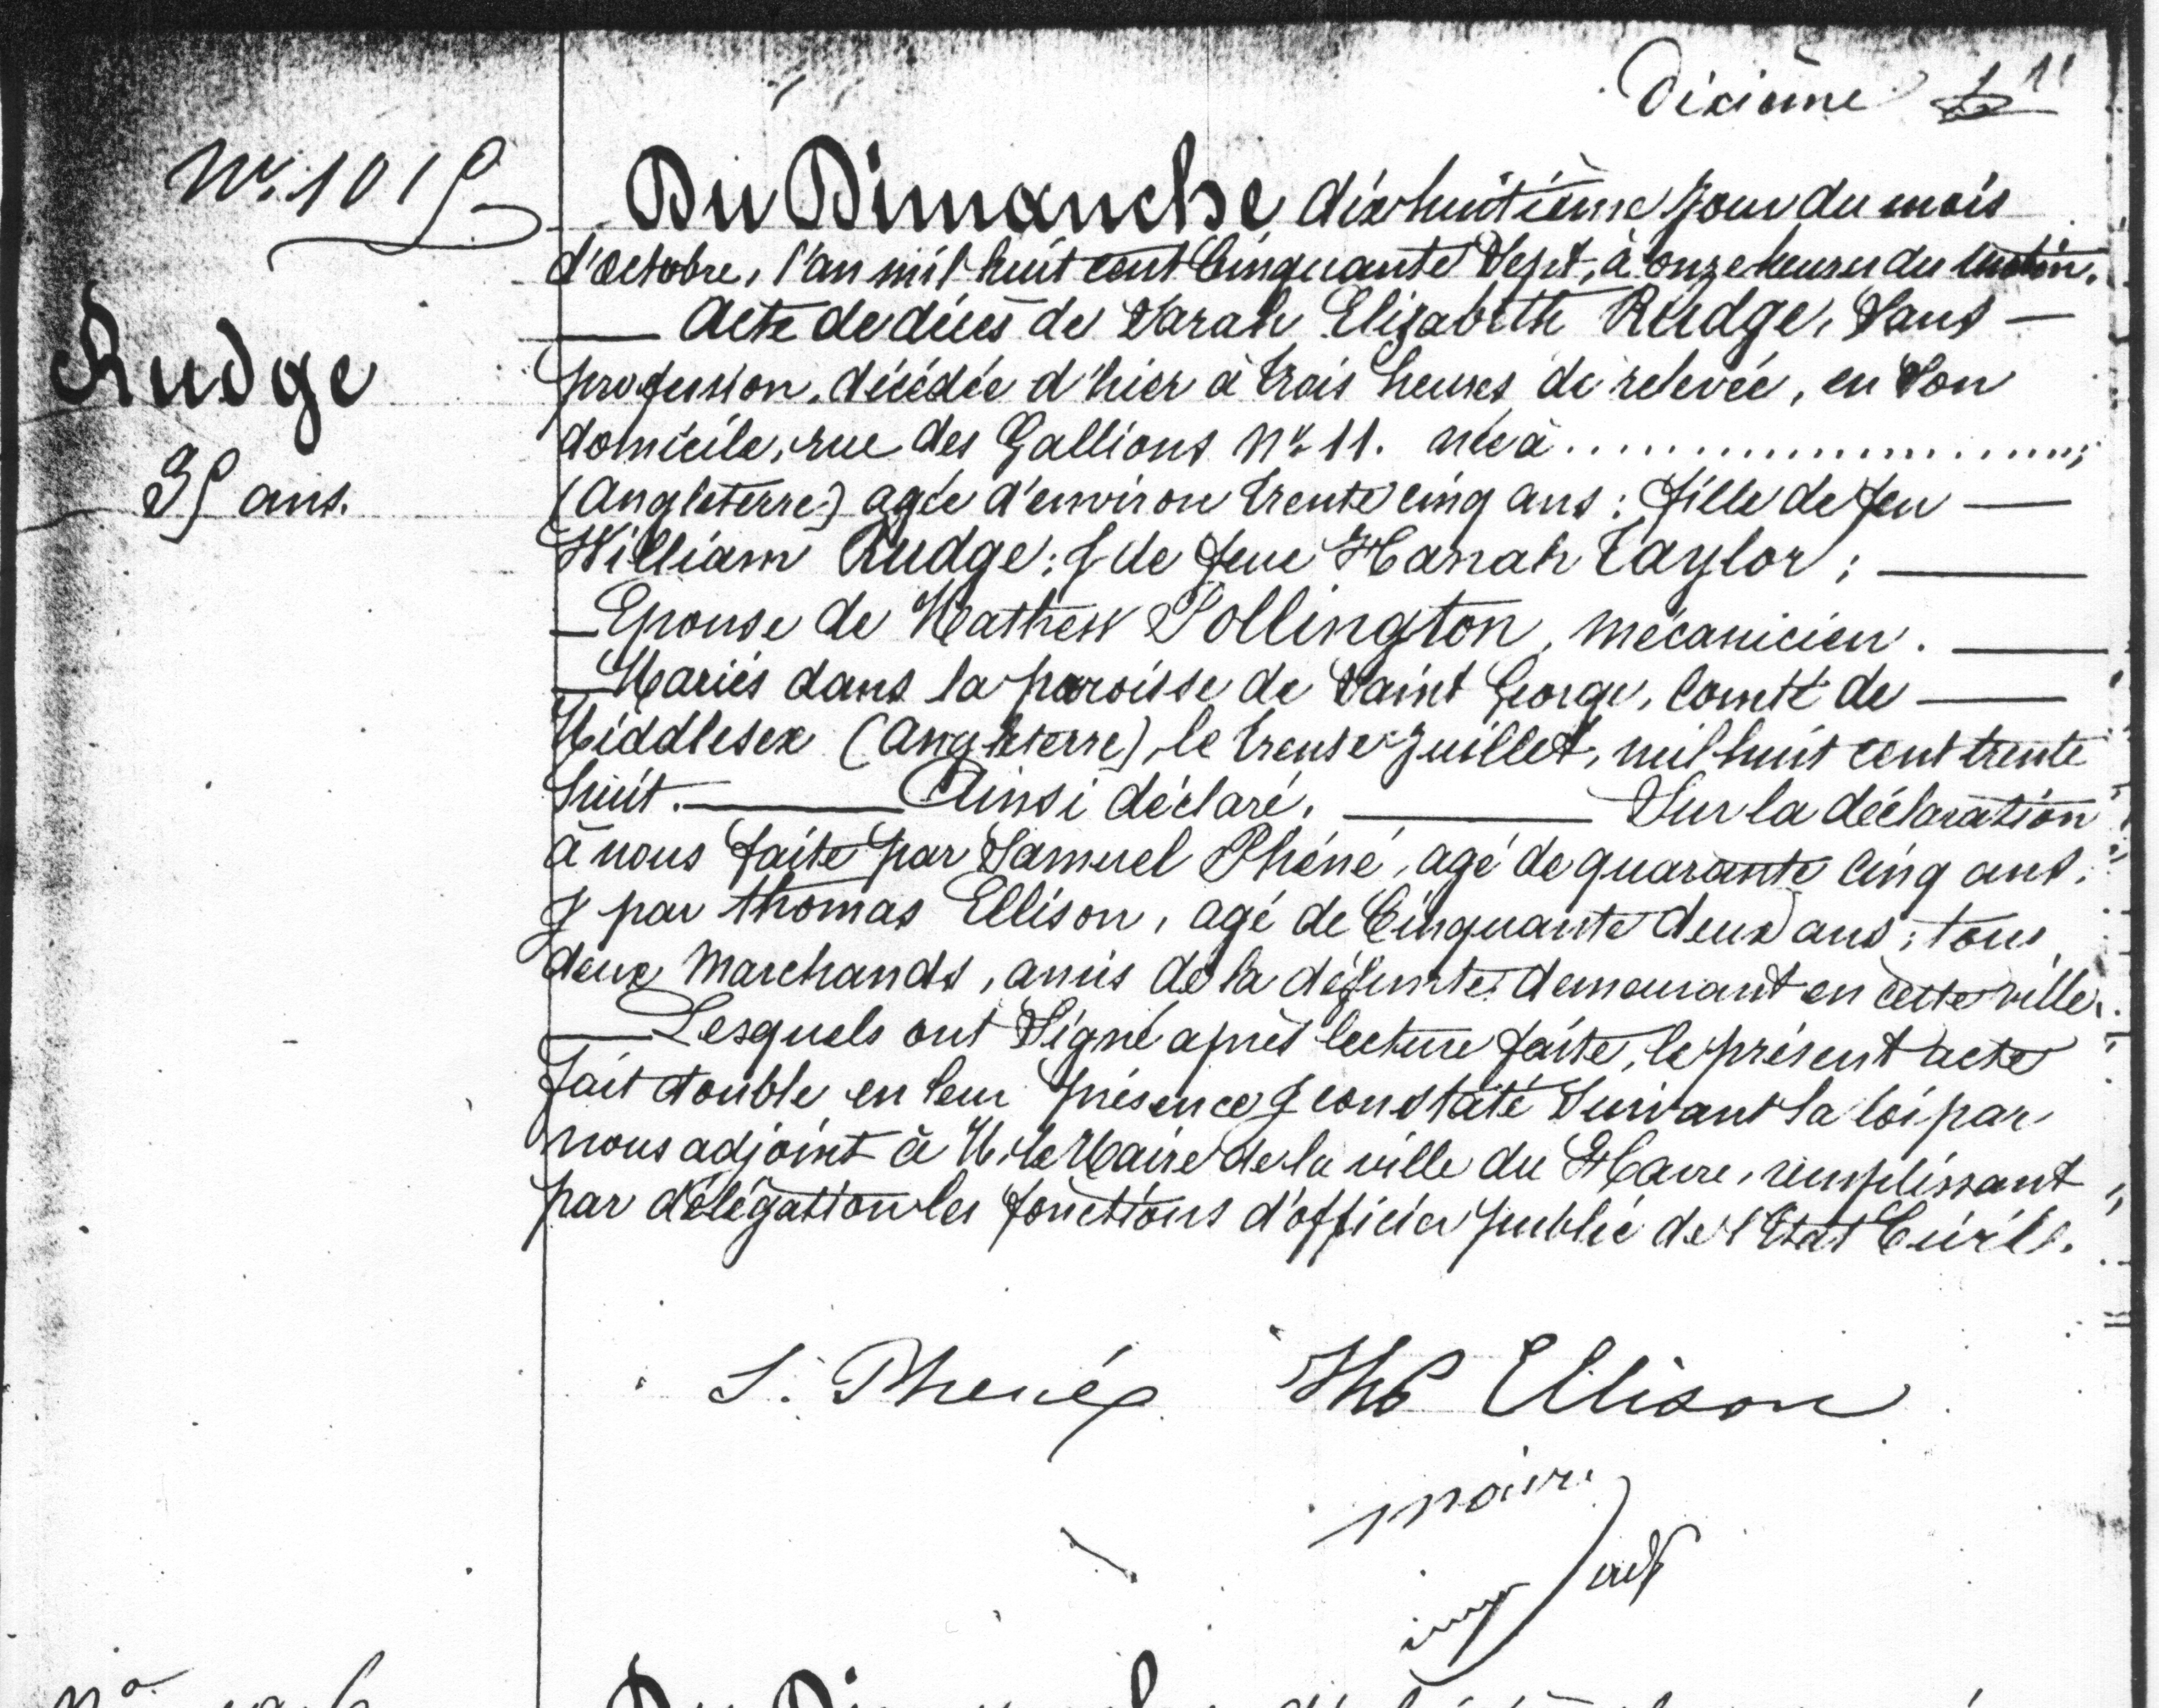 Dixième
Nº. 1015
Du Dimanche dix huitième jour du mois
d'octobre, l'an mil huit cent Cinquante Sept, à onze heures du matin.
Acte de décès de Sarah Elizabeth Rudge, Sans
Rudge
profession, décédée d'hier à trois heures de relevée, en Son
domicile, rue des Gallions nº 11. née à......................;
35 ans.
(Angleterre) agée d'environ trente cinq ans : fille de feu
William Rudge ; & de feue Hanah Taylor ;
Epouse de Mathew Pollington, mécanicien.
Mariés dans la paroisse de Saint George, Comté de
Middlesex (Angleterre), le treize juillet, mil huit cent trente
huit. Ainsi déclaré. Sur la déclaration
à nous faite par Samuel Phéné, agé de quarante cinq ans,
& par Thomas Ellison, agé de Cinquante deux ans ; tous
deux Marchands, amis de la défunte, demeurant en cette ville.
Lesquels ont Signé après lecture faite, le présent acte
fait double en leur présence & constaté Suivant la loi par
nous adjoint à M. le Maire de la ville du Havre, remplissant
par délégation les fonctions d'officier public de l'Etat Civil.
S. Phené Thos Ellison
Du Dimanche